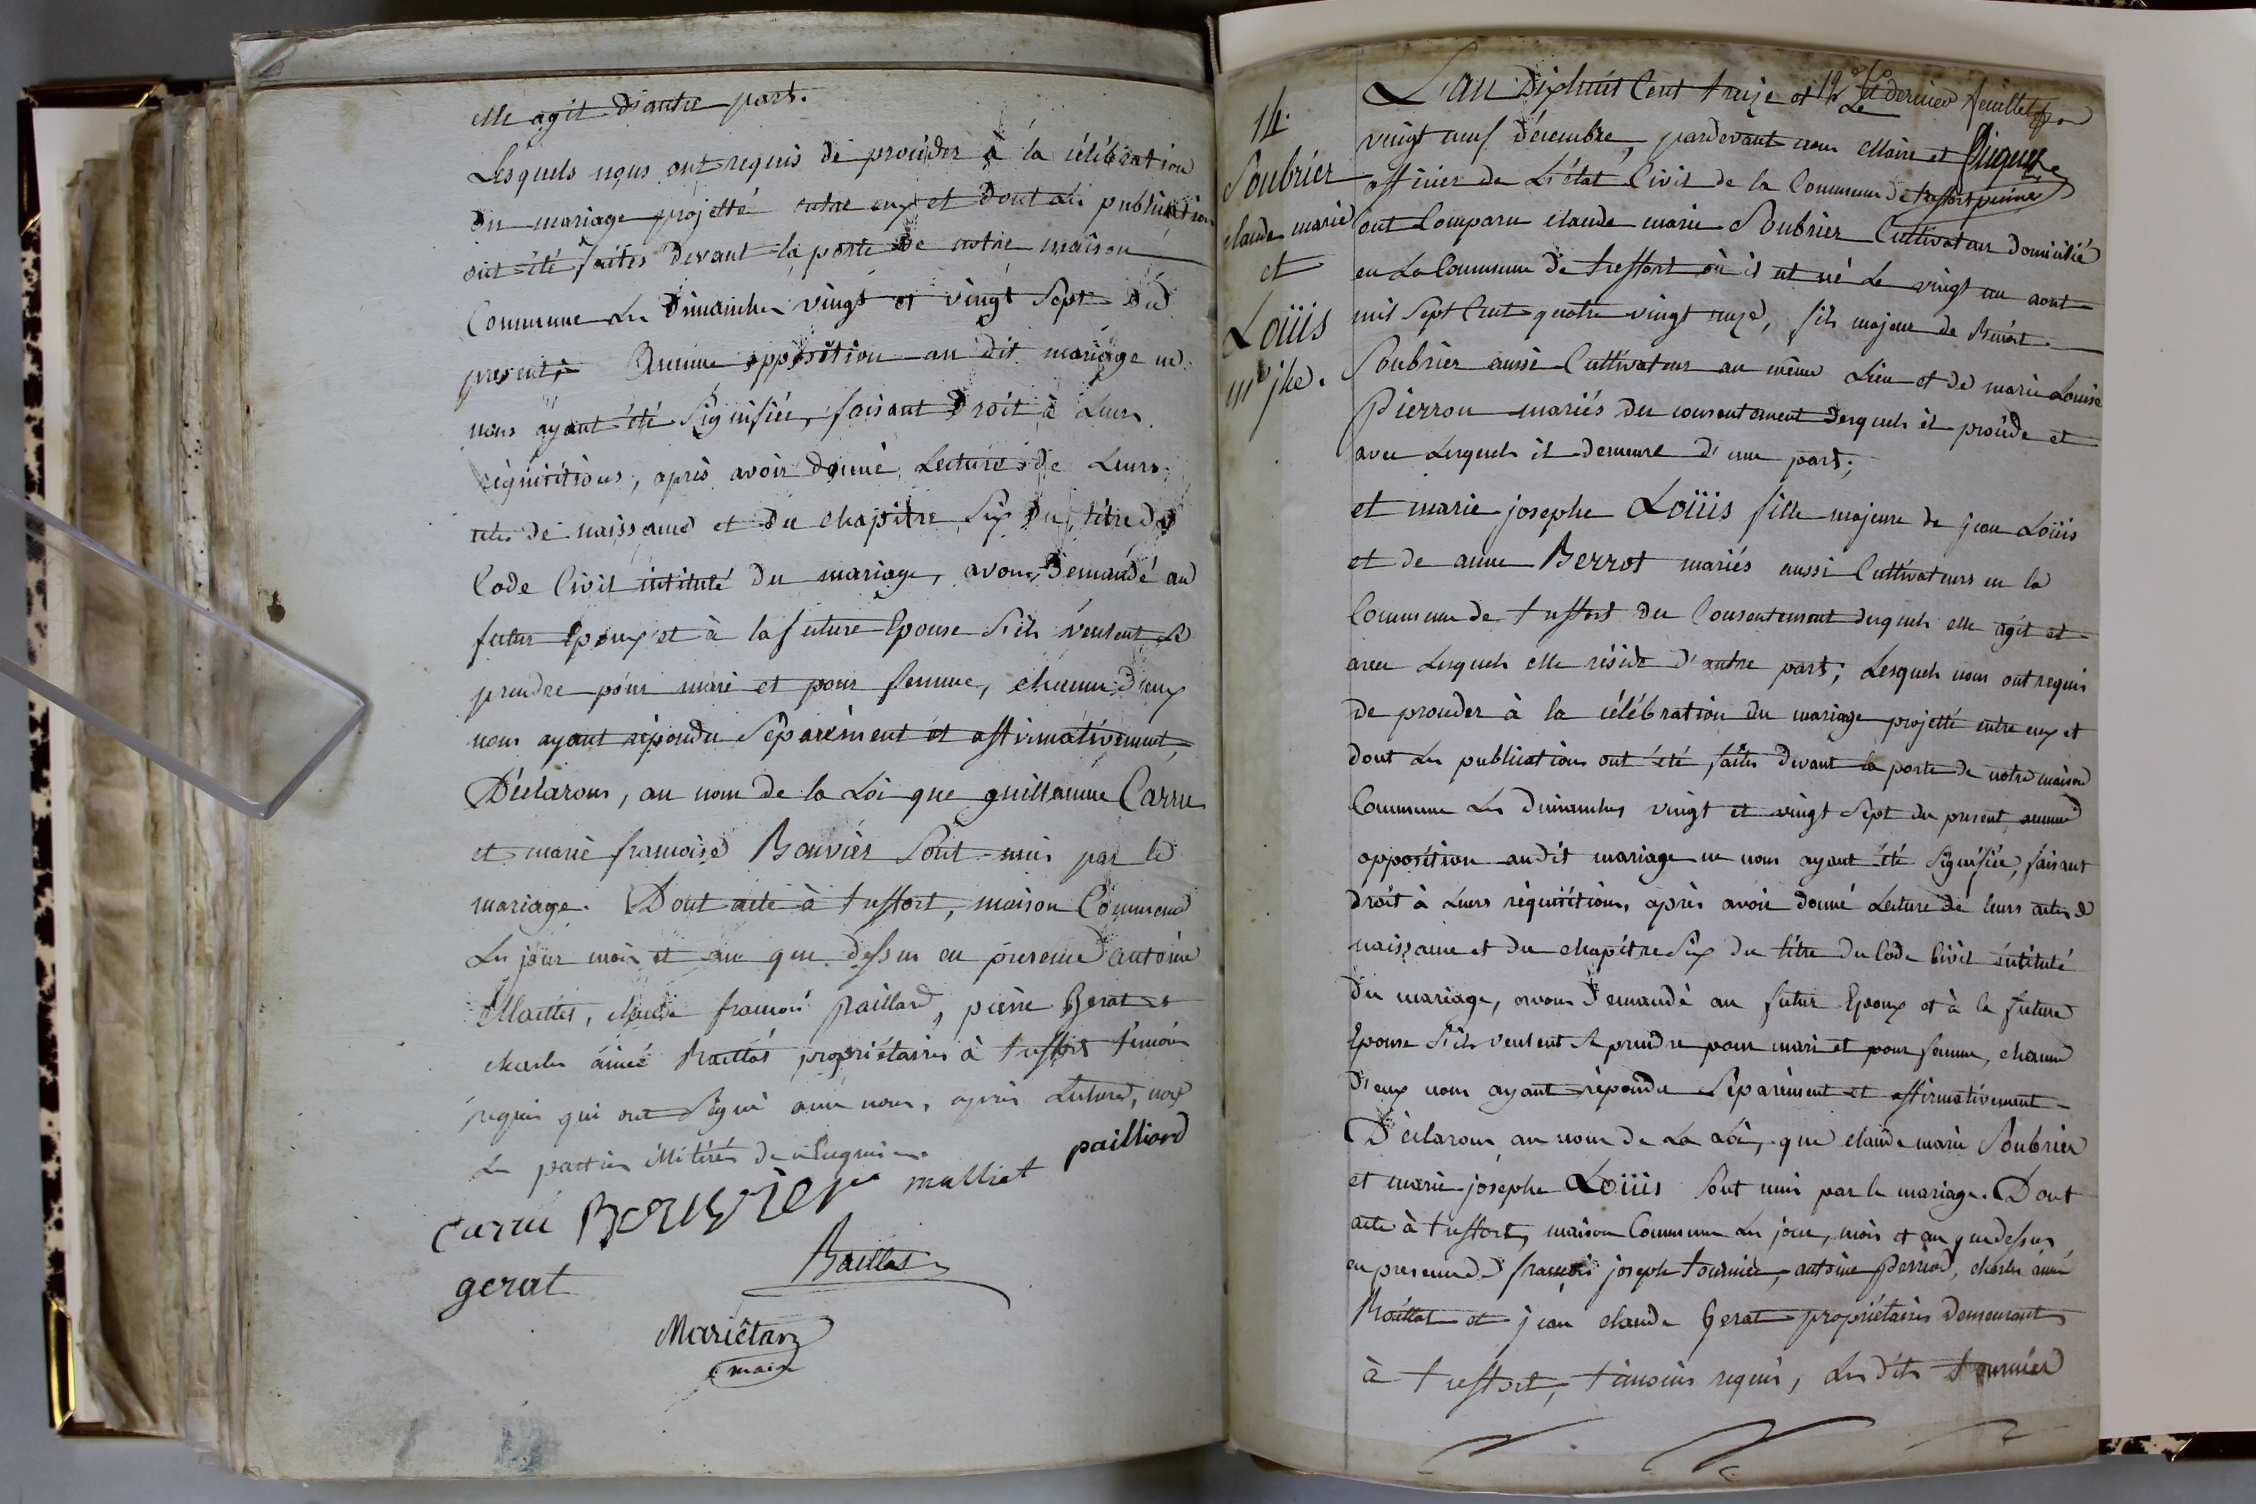 elle agit d'autre part.
Lesquels nous ont requis de procéder à la célébration
du mariage projetté entre eux et dont les publications
ont été faites devant la porte de notre maison
Commune les Dimanches vingt et vingt Sept du
présent; Aucune opposition au dit mariage ne
nous ayant été Signifiée, faisant droit à Leurs
réquisitions, après avoir donné Lecture de Leurs
actes de naissance et du chapitre Six du titre du
Code Civil intitulé du mariage, avons demandé au
futur Epoux et à la future Epouse S'ils veulent se
prendre pour mari et pour femme, chacun d'eux
nous ayant répondu Séparément et affirmativement,
Déclarons, au nom de la Loi que guillaume Carru
et marie françoise Bouvier Sont unis par le
mariage. Dont acte à treffort, maison Commune
Les jour mois et an que dessus en présence d'antoine
Maillet, claude françois Paillard, pierre Gerat et
charles aimé Raillat propriétaires à treffort témoins
requis qui ont Signé avec nous, après Lecture, non
Les parties illitérés de ce Enquises.
Carru Bouvier malliet pailliard
gerat Raillat
Mariétan
maire
14.
Soubrier
claude marie
et
Loüis
mie jhe.
12e et dernier feuillet
Piquet
L'an Dixhuit Cent treize et Le
vingt neuf décembre, pardevant nous Maire et
officier de L'état Civil de la Commune de treffort
ont Comparu claude marie Soubrier Cultivateur domicilié
en La Commune de treffort où il est né Le vingt un aout
mil Sept Cent quatre vingt onze, fils majeur de Benoit
Soubrier aussi Cultivateur au même Lieu et de marie Louise
Pierron mariés du consentement desquels il procède et
avec Lesquels il demeure d'une part;
et marie josephe Loüis fille majeure de jean Loüis
et de anne Berrot mariés aussi Cultivateurs en la
Commune de treffort du Consentement desquels elle agit et
avec Lesquels elle réside d'autre part; Lesquels nous ont requis
de procéder à la célébration du mariage projetté entre eux et
dont les publications ont été faites devant la porte de notre maison
Commune Les dimanches vingt et vingt Sept du présent aucune
opposition audit mariage ne nous ayant été Signifiée, faisant
droit à Leurs réquisitions, après avoir donné Lecture de leurs actes de
naissance et du chapitre Six du titre du Code Civil intitulé
du mariage, avons demandé au futur Epoux et à la future
Epouse S'ils veulent se prendre pour mari et pour femme, chacun
d'eux nous ayant répondu Séparément et affirmativement
Déclarons au nom de La Loi, que claude marie Soubrier
et marie josephe Loüis Sont unis par le mariage. Dont
acte à treffort, maison Commune Les jour, mois et an que dessus
en présence de françois joseph tournier, antoine perriod, charles aimé
Raillat et jean claude Gerat propriétaires demeurant
à treffort, témoins requis, Les dits tournier